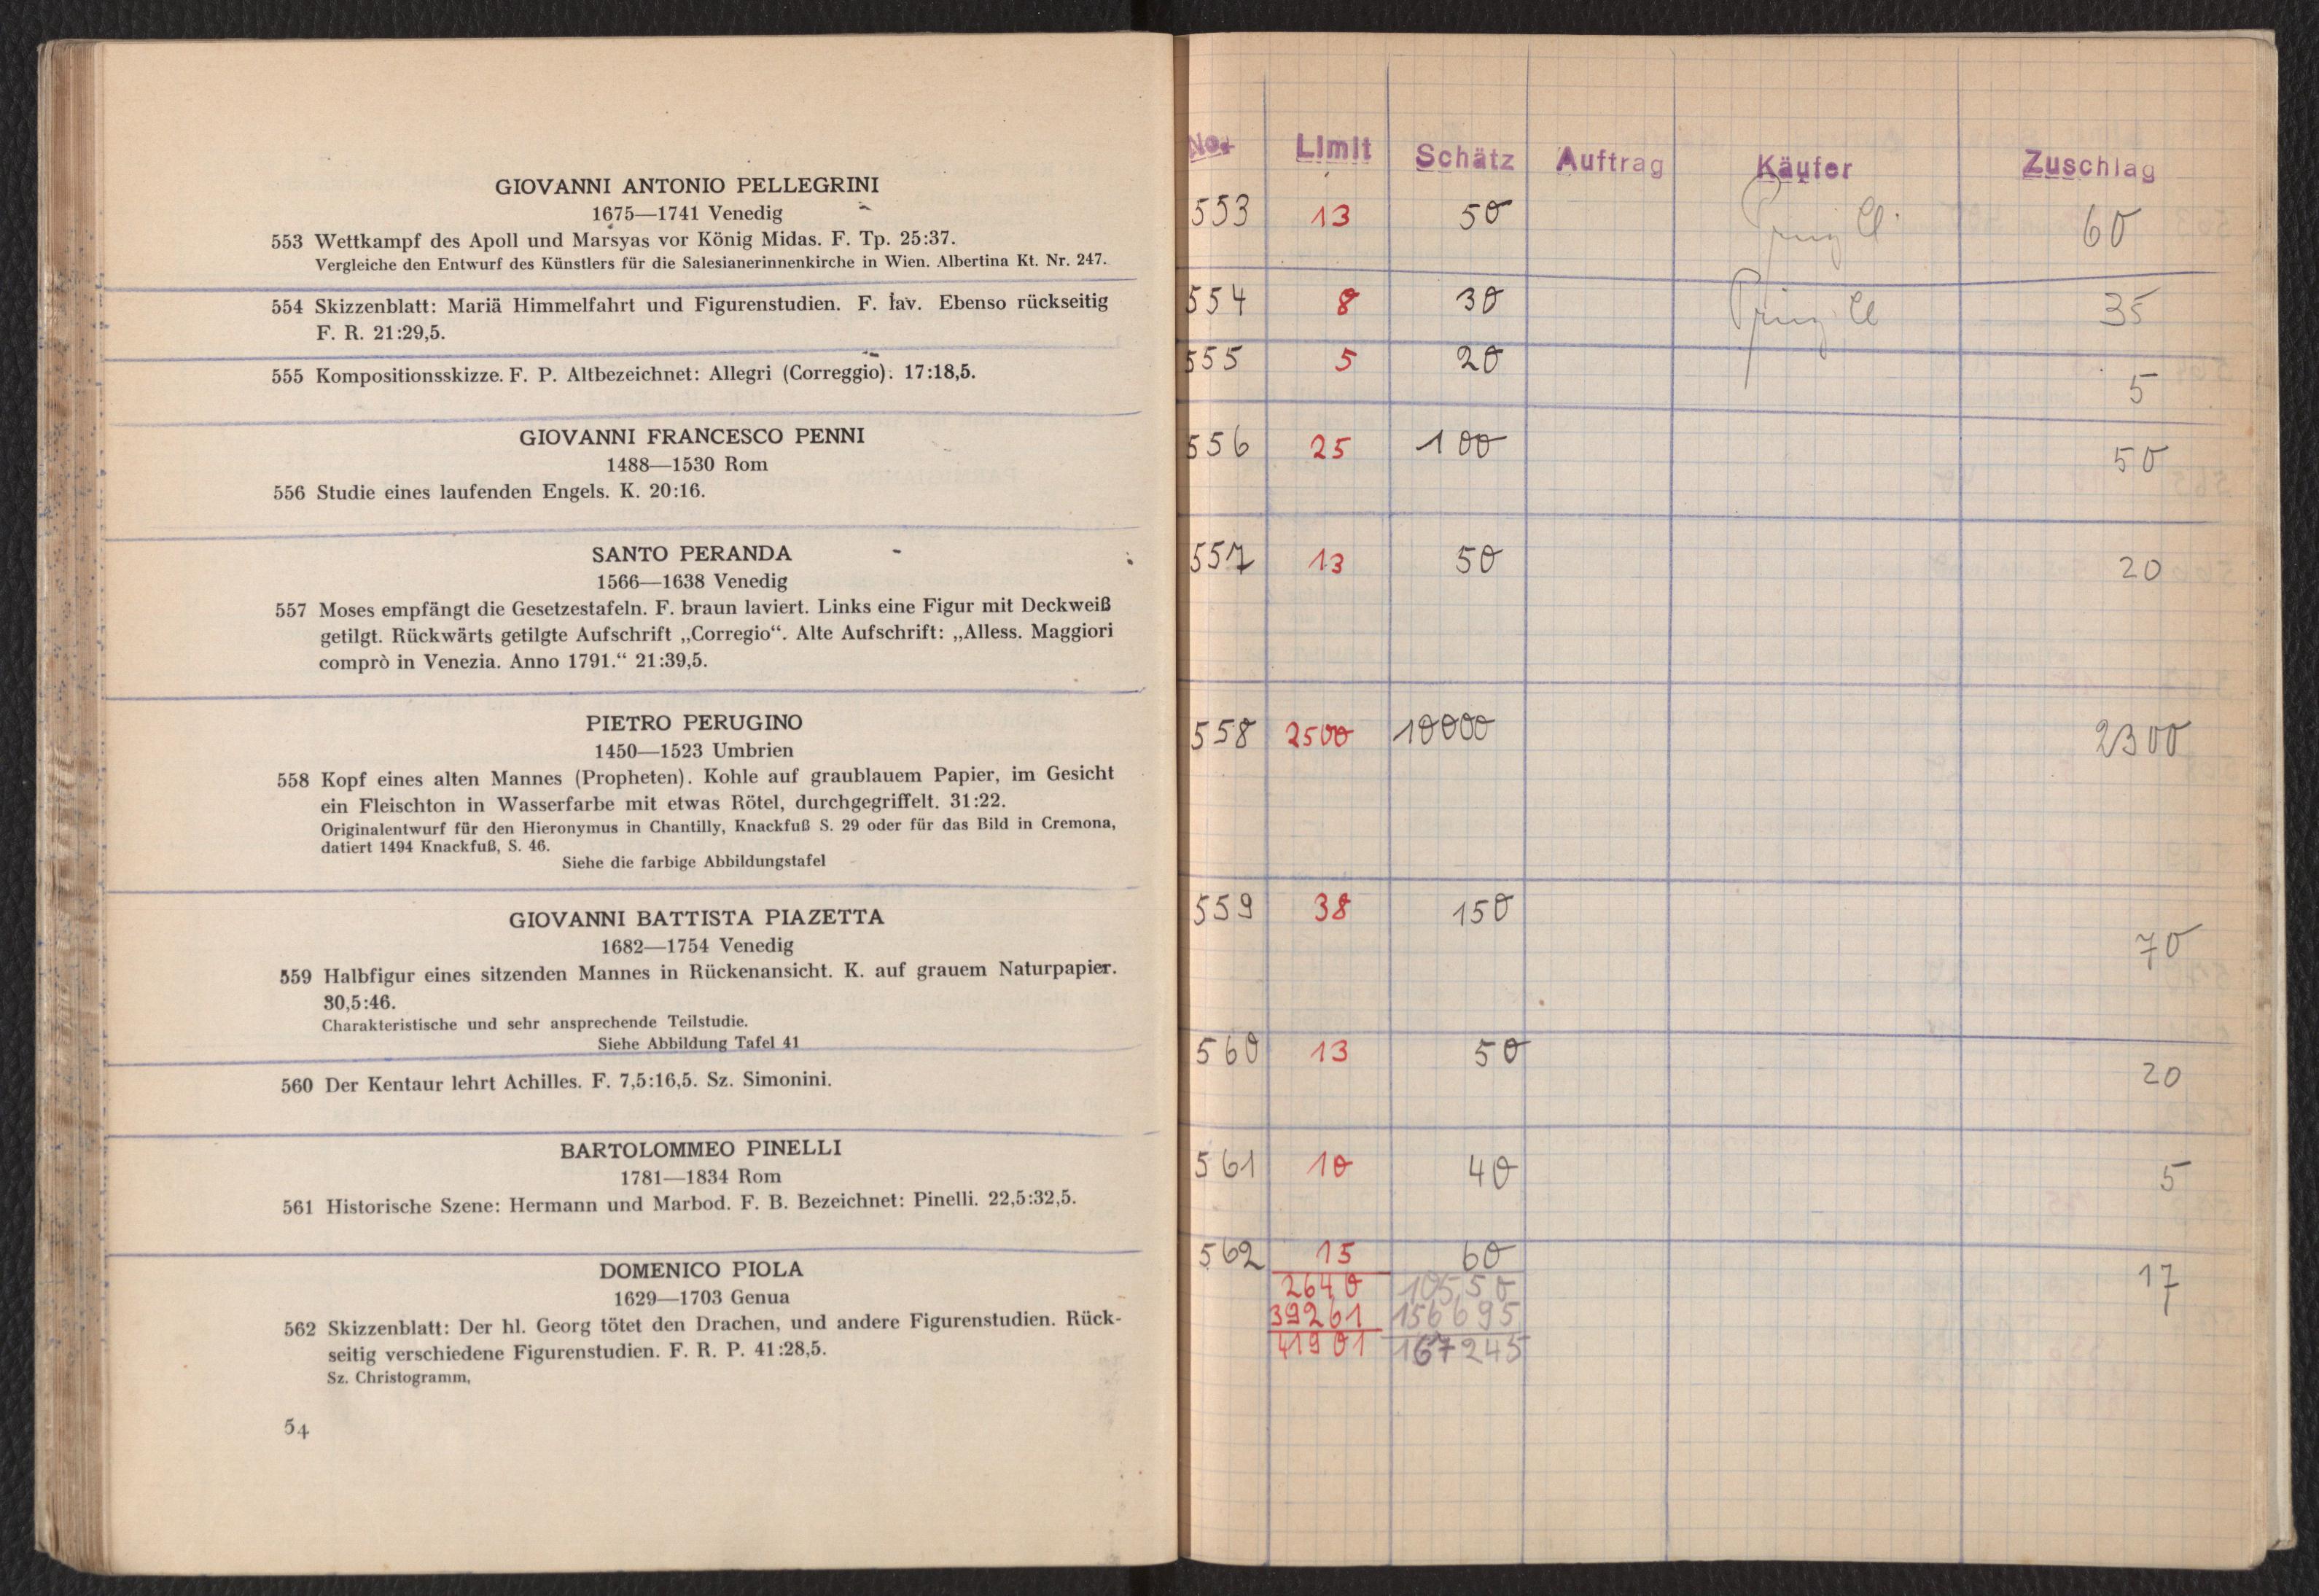 GIOVANNI ANTONIO PELLEGRINI
1675—1741 Venedig
553 Wettkampf des Apoll und Marsyas vor König Midas. F. Tp. 25:37.
Vergleiche den Entwurf des Künstlers für die Salesianerinnenkirche in Wien. Albertina Kt. Nr. 247.
554 Skizzenblatt: Mariä Himmelfahrt und Figurenstudien. F. lav. Ebenso rückseitig
F. R. 21:29,5.
555 Kompositionsskizze. F. P. Altbezeichnet: Allegri (Correggio). 17:18,5.
GIOVANNI FRANCESCO PENNI
1488—1530 Rom
556 Studie eines laufenden Engels. K. 20:16.
SANTO PERANDA
1566—1638 Venedig
557 Moses empfängt die Gesetzestafeln. F. braun laviert. Links eine Figur mit Deckweiß
getilgt. Rückwärts getilgte Aufschrift „Corregio“. Alte Aufschrift: „Alless. Maggiori
comprò in Venezia. Anno 1791.“ 21:39,5.
PIETRO PERUGINO
1450—1523 Umbrien
558 Kopf eines alten Mannes (Propheten). Kohle auf graublauem Papier, im Gesicht
ein Fleischton in Wasserfarbe mit etwas Rötel, durchgegriffelt. 31:22.
Originalentwurf für den Hieronymus in Chantilly, Knackfuß S. 29 oder für das Bild in Cremona,
datiert 1494 Knackfuß, S. 46.
Siehe die farbige Abbildungstafel
GIOVANNI BATTISTA PIAZETTA
1682—1754 Venedig
559 Halbfigur eines sitzenden Mannes in Rückenansicht. K. auf grauem Naturpapier.
30,5:46.
Charakteristische und sehr ansprechende Teilstudie.
Siehe Abbildung Tafel 41
560 Der Kentaur lehrt Achilles. F. 7,5:16,5. Sz. Simonini.
BARTOLOMMEO PINELLI
1781—1834 Rom
561 Historische Szene: Hermann und Marbod. F. B. Bezeichnet: Pinelli. 22,5:32,5.
DOMENICO PIOLA
1629—1703 Genua
562 Skizzenblatt: Der hl. Georg tötet den Drachen, und andere Figurenstudien. Rück-
seitig verschiedene Figurenstudien. F. R. P. 41:28,5.
Sz. Christogramm,
54
No. Limit Schätz Auftrag Käufer Zuschlag
553 13 50 60
554 8 30 35
555 5 20 5
556 25 100 50
557 13 50 20
558 2500 10000 2300
559 38 150 70
560 13 50 20
561 10 40 5
562 15 60 17
2640 10550
39261 156695
41901 167245